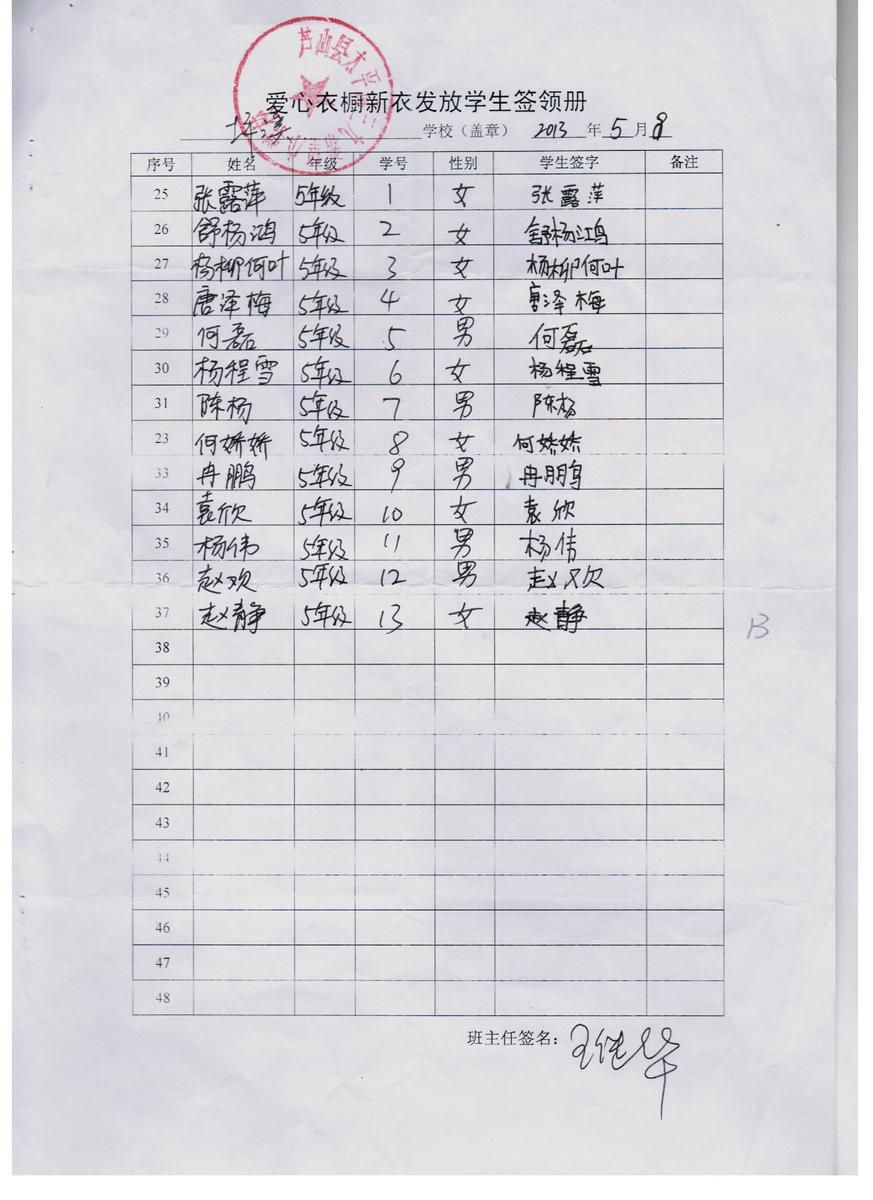 芦山县太平
爱心衣橱新衣发放学生签领册
学校（盖章） 2013 年 5 月
序号 姓名 年级 学号 性别 学生签字 备注
25 张露萍 5年级 1 女 张露萍
26 舒杨鸿 5年级 2 女 舒杨鸿
27 杨柳何叶 5年级 3 女 杨柳何叶
28 唐泽梅 5年级 4 女 唐泽梅
29 何磊 5年级 5 男 何磊
30 杨程雪 5年级 6 女 杨程雪
31 陈杨 5年级 7 男 陈杨
23 何娇娇 5年级 8 女 何娇娇
33 冉鹏 5年级 9 男 冉鹏
34 袁欣 5年级 10 女 袁欣
35 杨伟 5年级 11 男 杨伟
36 赵欢 5年级 12 男 赵欢
37 赵静 5年级 13 女 赵静
38
39
40
41
42
43
44
45
46
47
48
班主任签名：
B